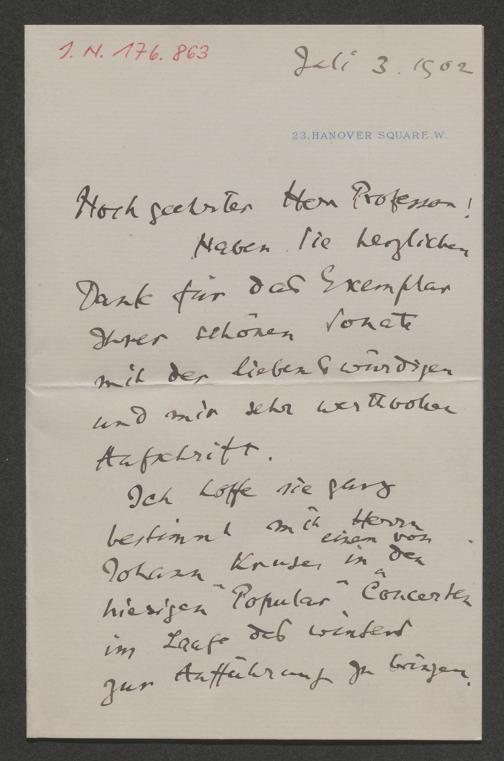 J. N. 176.863
Juli 3. 1902
23, HANOVER SQUARE. W.
Hoch geehrter Herr Professor!
Haben Sie herzlichen
Dank für das Exemplar
Ihrer schönen Sonate
mit der liebenswürdigen
und mir sehr werthvollen
Aufschrift.
Ich hoffe sie ganz
bestimmt mit Herrn
Johann Kruse, in einem von den
hiesigen "Popular" Concerten
im Laufe des Winters
zur Aufführung zu bringen.